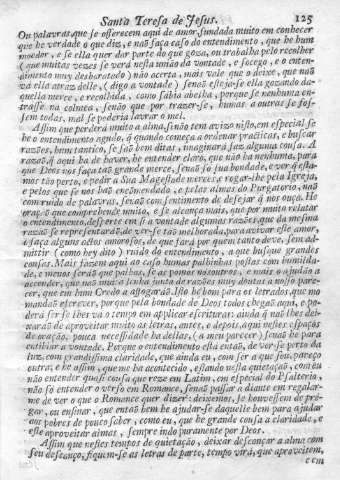 Santa Teresa de Jesus. 125
Ou palavras que se offerecem aqui de amor, fundada muito em conhecer
que he verdade o que diz, e naõ faça caso do entendimento, que he hum
moedor, e se ella quer dar parte do que goza, ou trabalha pelo recolher
(que muitas vezes se verá nesta uniaõ da vontade, e socego, e o enten-
dimento muy desbaratado) naõ acerta, mais vale que o deixe, que naõ
vá ella atraz delle, (digo a vontade) senaõ esteja-se ella gozando da-
quella merce, e recolhida, como sabia abelha, porque se nenhuma en-
trasse na colmea, senaõ que por trazer-se, humas a outras se fos-
sem todas, mal se poderia lavrar o mel.
Assim que perderá muito a alma, senaõ tem aviso nisto, em especial se
he o entendimento agudo, que quando começa a ordenar practicas, e buscar
razões, hem tantico, se saõ bem ditas, imaginará faz alguma cousa. A
razaõ, que aqui ha de haver, he entender claro, que naõ ha nenhuma, para
que Deos nos faça taõ grande merce, senaõ só sua bondade, e ver que esta-
mos taõ perto, e pedir a Sua Magestade merces, e rogar-lhe pela Igreja,
e pelos que se nos haõ encommendado, e pelas almas do Purgatorio, naõ
com ruido de palavras, senaõ com sentimento de desejar que nos ouça. He
oraçaõ que comprehende muito, e se alcança mais, que por muito relatar
o entendimento, desperte em si a vontade algumas razões, que da mesma
razaõ se representaráõ, de ver-se taõ melhorada, para avivar esse amor,
e faça alguns actos amorosos, de que fará por quem tanto deve, sem ad-
mittir (como hey dito) ruido do entendimento, a que busque grandes
cousas. Mais fazem aqui ao caso humas palhinhas postas com humilda-
de, e menos seráõ que palhas, se as pomos nos outros, e mais o ajudaõ a
accender, que naõ muita lenha junta de razões muy doutas a nosso pare-
cer, que em hum Credo a afogaraõ. Isto he bom para os letrados, que me
mandaõ escrever, porque pela bondade de Deos todos chegaõ aqui, e po-
derá ser se lhes vá o tempo em applicar escrituras: ainda que naõ lhes dei-
xaráõ de aproveitar muito as letras, antes, e depois, aqui nestes espaços
de oraçaõ, pouca necessidade ha dellas, (a meu parecer) senaõ he para
entibiar a vontade. Porque o entendimento está entaõ, de ver-se perto da
luz, com grandissima claridade, que ainda eu, com ser a que sou, pareço
outra; e he assim, que me ha acontecido, estando nesta quietaçaõ, com eu
naõ entender quasi cousa que reze em Latim, em especial do Psalterio,
naõ só entender o verso em Romance, senaõ passar a diante em regalar-
me de ver o que o Romance quer dizer: deixemos, se houvessem de pré-
gar, ou ensinar, que entaõ bem he ajudar-se daquelle bem para ajudar
aos pobres de pouco saber, como eu, que he grande cousa a claridade, e
este aproveitar almas, sempre indo puramente por Deos.
Assim que nestes tempos de quietaçaõ, deixar descançar a alma com
seu descanço, fiquem-se as letras de parte, tempo virá, que aproveitem,
e em